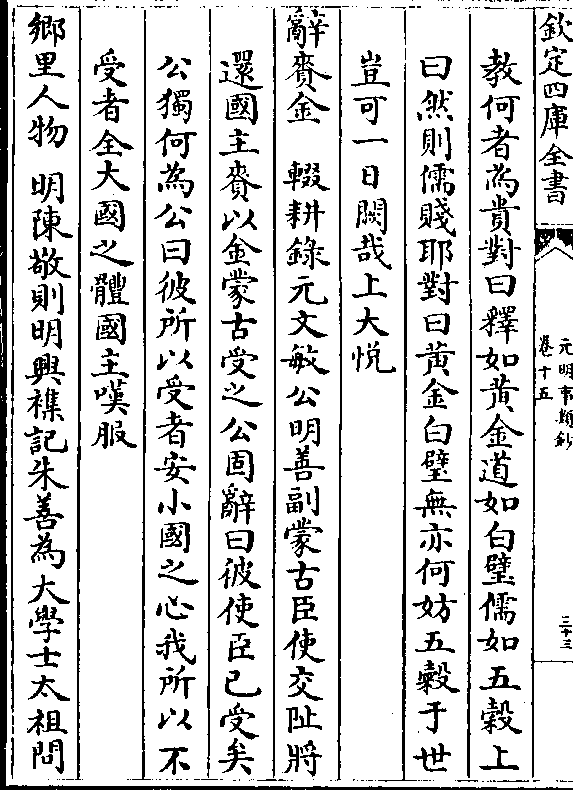 欽定四庫全書
元明事類鈔
卷十五
三十三
教何者為貴對曰釋如黄金道如白璧儒如五榖上
曰然則儒賤耶對曰黄金白璧無亦何妨五榖于世
豈可一日闕哉上大悦
辭賚金 輟耕錄元文敏公明善副蒙古臣使交阯將
還國主賚以金蒙古受之公固辭曰彼使臣已受矣
公獨何為公曰彼所以受者安小國之心我所以不
受者全大國之體國主嘆服
鄉里人物 明陳敬則明興襍記朱善為大學士太祖問